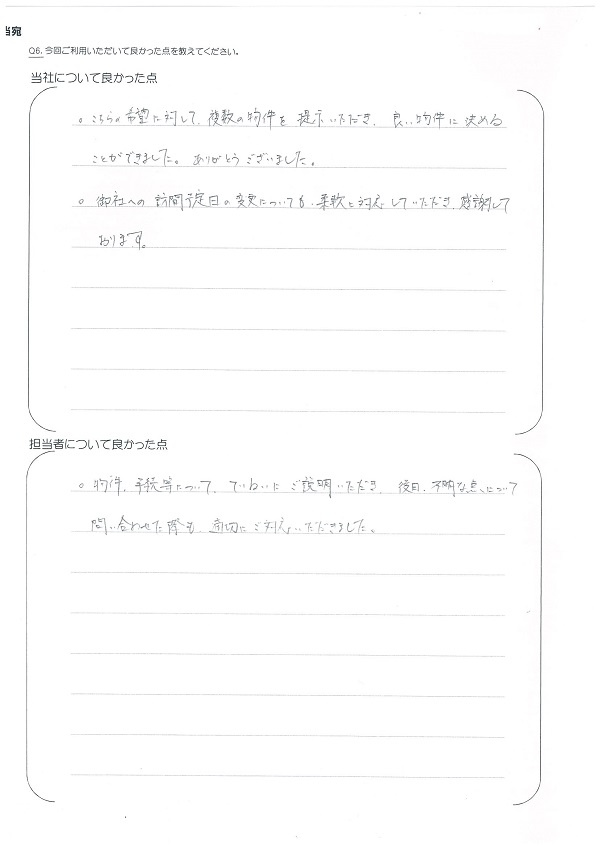 当宛
Q6. 今回ご利用いただいて良かった点を教えてください。
当社について良かった点
。こちらの希望に対して、複数の物件を提示いただき、良い物件に決める
ことができました。ありがとうございました。
。御社への訪問予定日の変更についても、柔軟に対応していただき、感謝して
おります。
担当者について良かった点
。物件、手続等について、ていねいにご説明いただき、後日、不明な点について
問い合わせた際も、適切にご対応いただきました。